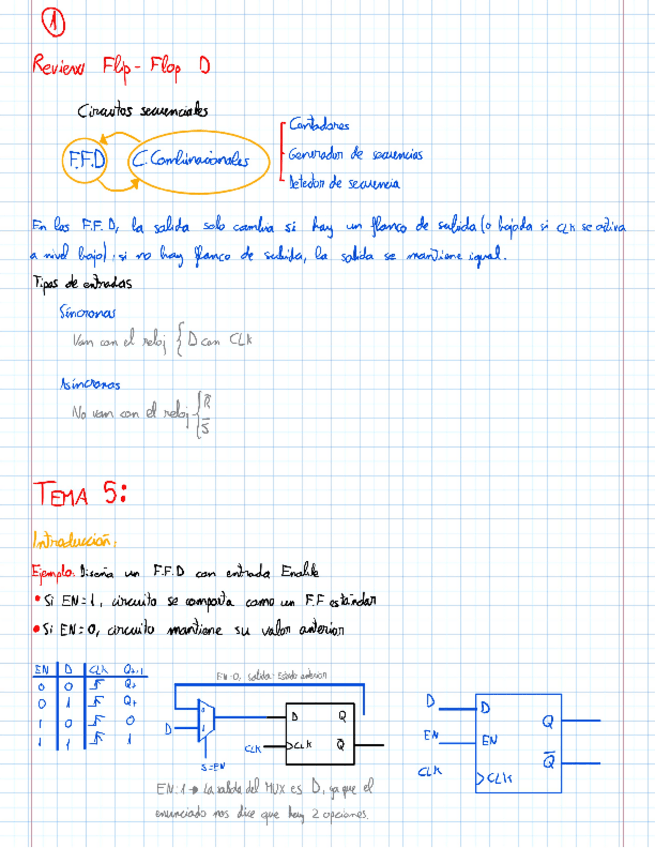 1
Review Flip-Flop D
Circuitos secuenciales
F.F.D
C.Combinacionales
Contadores
Generador de secuencias
Detector de secuencia
En los F.F.D, la salida solo cambia si hay un flanco de subida (o bajada si CLK se activa
a nivel bajo), si no hay flanco de subida, la salida se mantiene igual.
Tipos de entradas
Síncronas
Van con el reloj { D con CLK
Asíncronas
No van con el reloj { R̅
S̅
TEMA 5:
Introducción:
Ejemplo: Diseña un F.F.D con entrada Enable
• Si EN=1, circuito se comporta como un F.F estándar
• Si EN=0, circuito mantiene su valor anterior
EN D CLK Qt+1
0 0 Qt
0 1 Qt
1 0 0
1 1 1
EN:0, salida: Estado anterior
0
1
D
S=EN
CLK
D Q
CLK Q̅
EN:1 → La salida del MUX es D, ya que el
enunciado nos dice que hay 2 opciones.
D
EN
CLK
D
Q
EN
Q̅
CLK